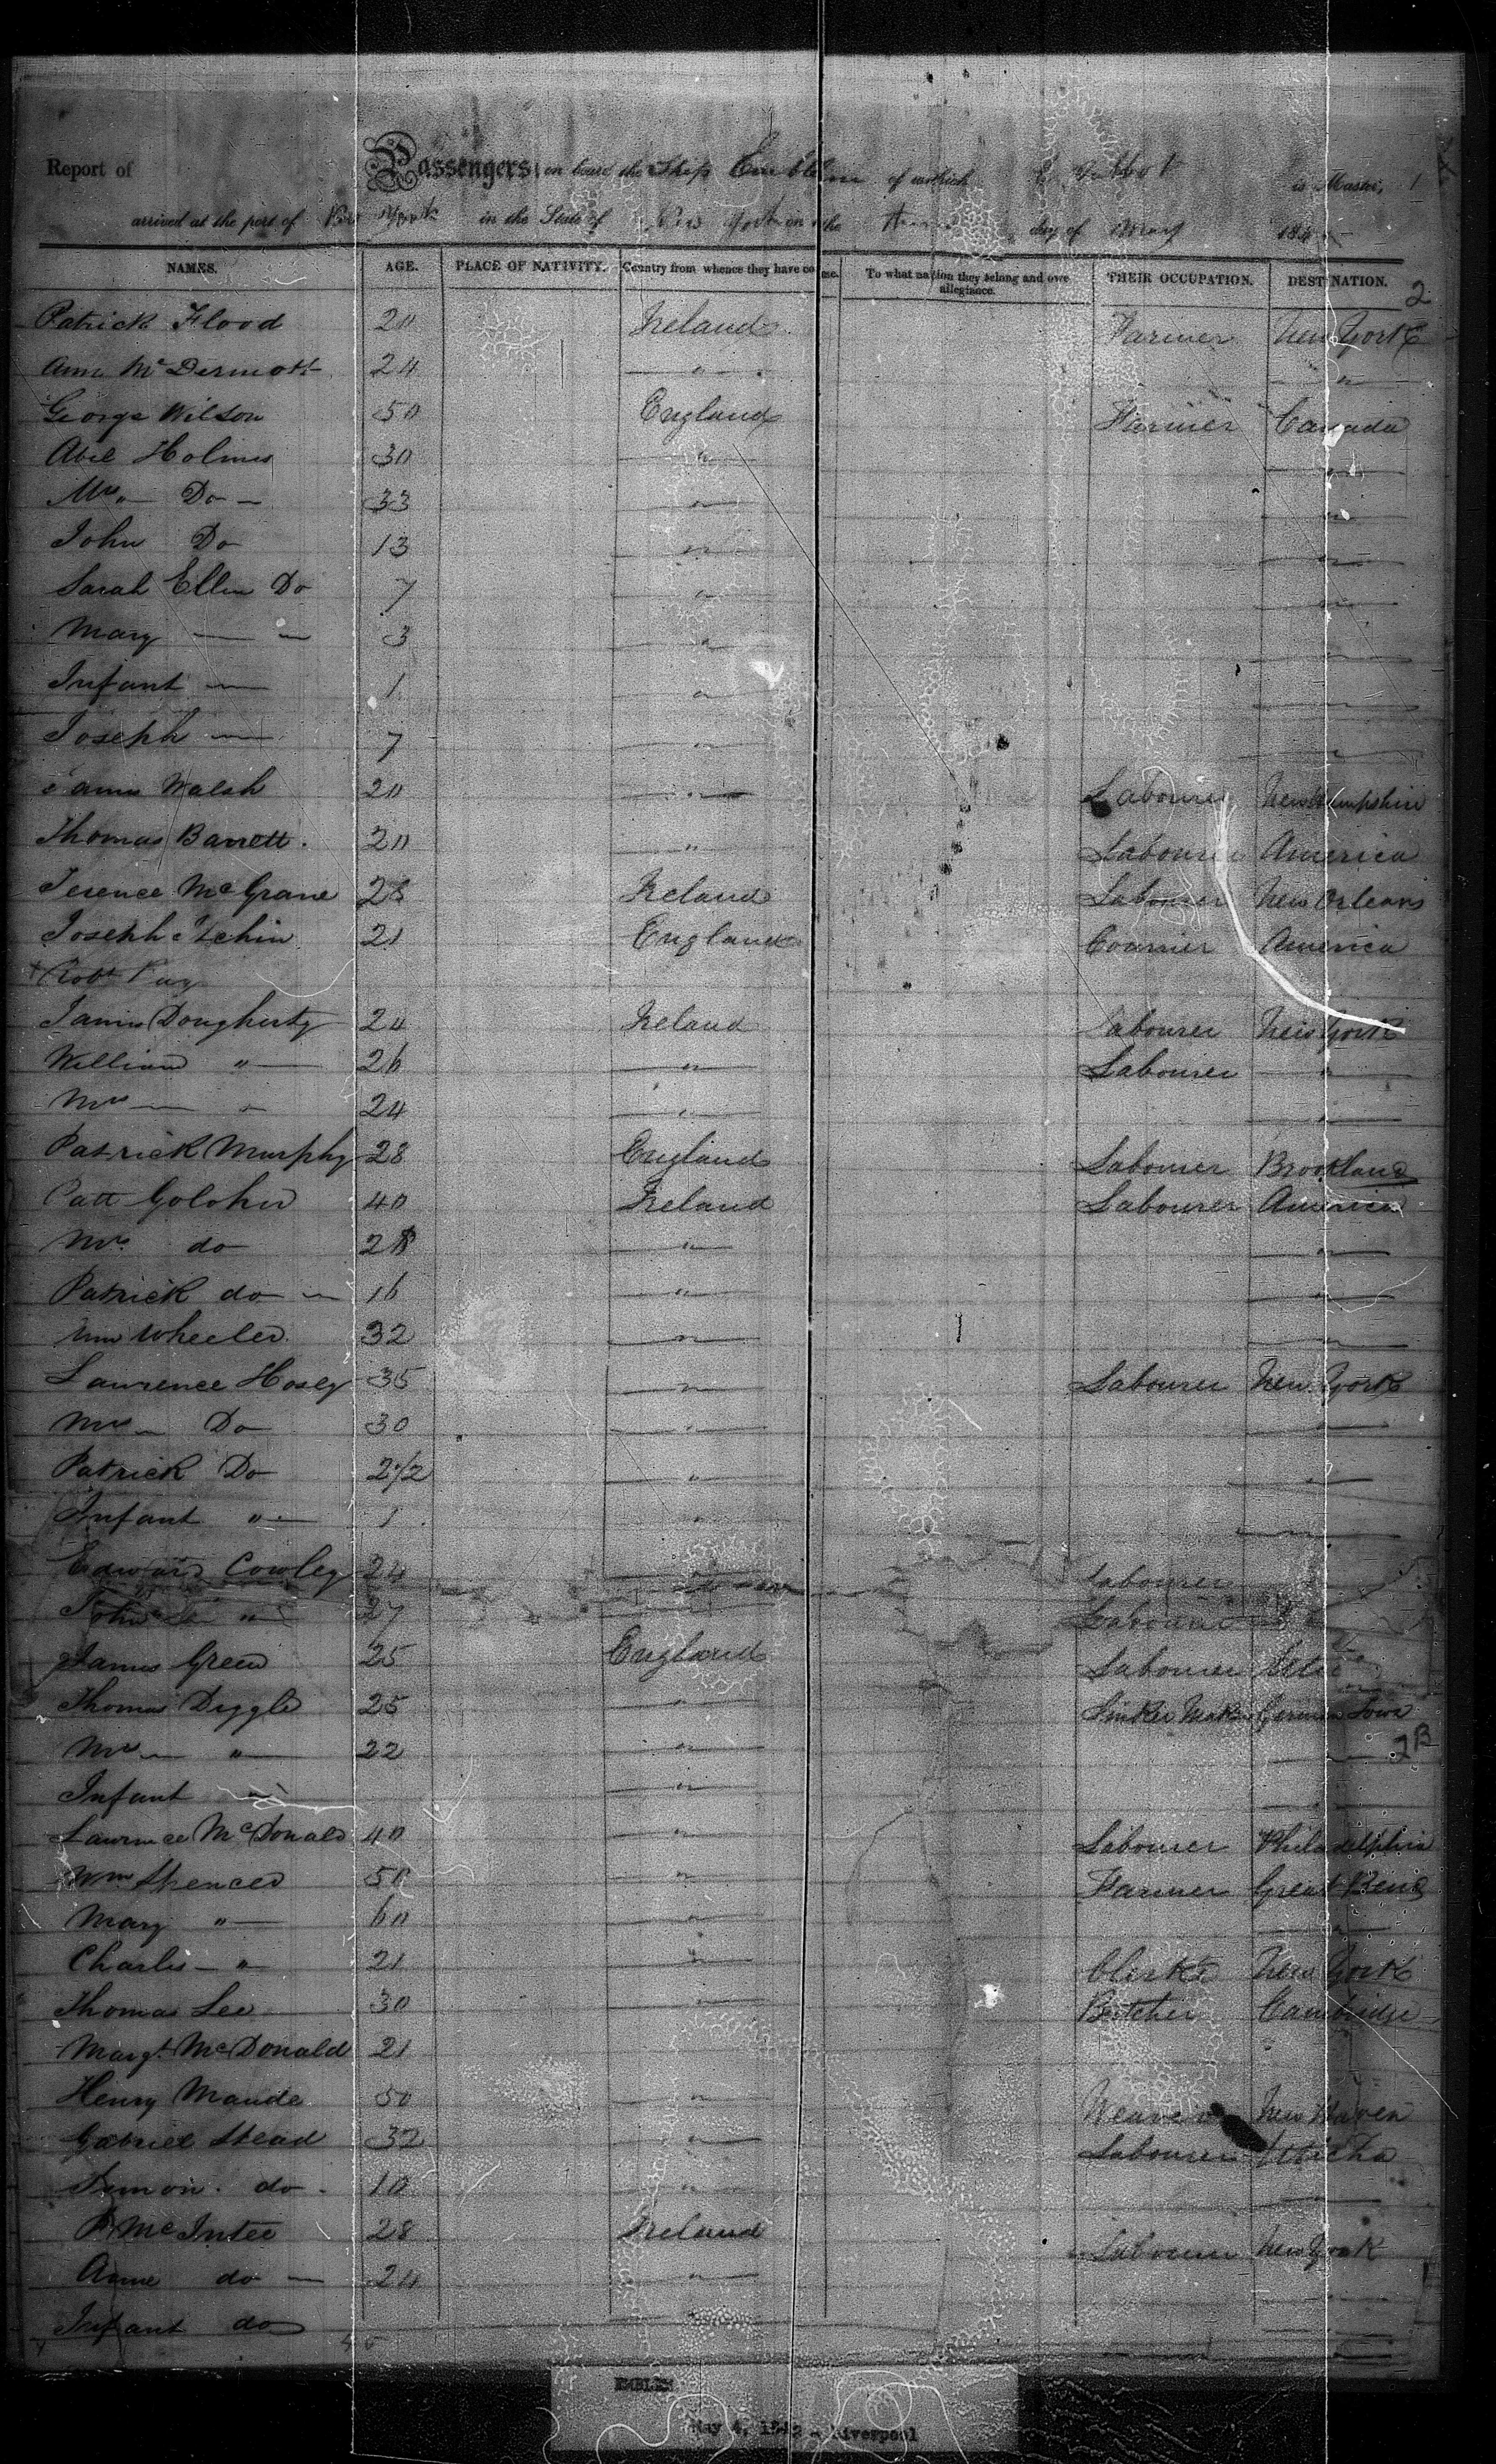 Report of Passengers on board the Ship Emblem of which is Master, 1
arrived at the port of New York in the State of New York on the day of May 184
NAMES. AGE. PLACE OF NATIVITY. Country from whence they have come. To what nation they belong and owe allegiance. THEIR OCCUPATION. DESTINATION.
2
Patrick Flood 20 Ireland Farmer New York
Ann McDermott 24 " "
George Wilson 50 England Farmer Canada
Abel Holmes 30 " "
Mrs " Do 33 " "
John Do 13 " "
Sarah Ellen Do 7 " "
Mary " 3 " "
Infant " 1 " "
Joseph " 7 " "
James Walsh 20 " Labourer New Hampshire
Thomas Barrett. 20 " Labourer America
Terence McGrane 28 Ireland Labourer New Orleans
Joseph 21 England Courrier America
Robt
James Dougherty 20 Ireland Labourer New York
William " 26 " Labourer "
Mrs " 24 " "
Patrick Murphy 28 England Labourer Brookland
Patt Goloher 40 Ireland Labourer America
Mrs. do 28 " "
Patrick do 16 " "
Wheeler 32 " "
Lawrence Hosey 35 " Labourer New York
Mrs Do 30 " "
Patrick Do 2 1/2 " "
Infant " 1 " "
Edward Cowley 24 " Labourer
John " 27 " Labourer
James Green 25 England Labourer
Thomas Diggle 25 " Sinker Maker German Town
Mrs " 22 " "
2B
Infant " "
Lawrence McDonald 40 " Labourer Philadelphia
Wm Spencer 50 " Farmer Great Bend
Mary " 60 " "
Charles " 21 " Clerk New York
Thomas Lee 30 " Butcher Cambridge
Margt. McDonald 21
Henry Maude 50 " Weaver New Haven
Gabriel Stead 32 " Labourer
Symon. do. 10 "
P McIntee 28 Ireland Labourer New York
Anne do 24 "
Infant do
EMBLEM
May 4, 1842 - Liverpool